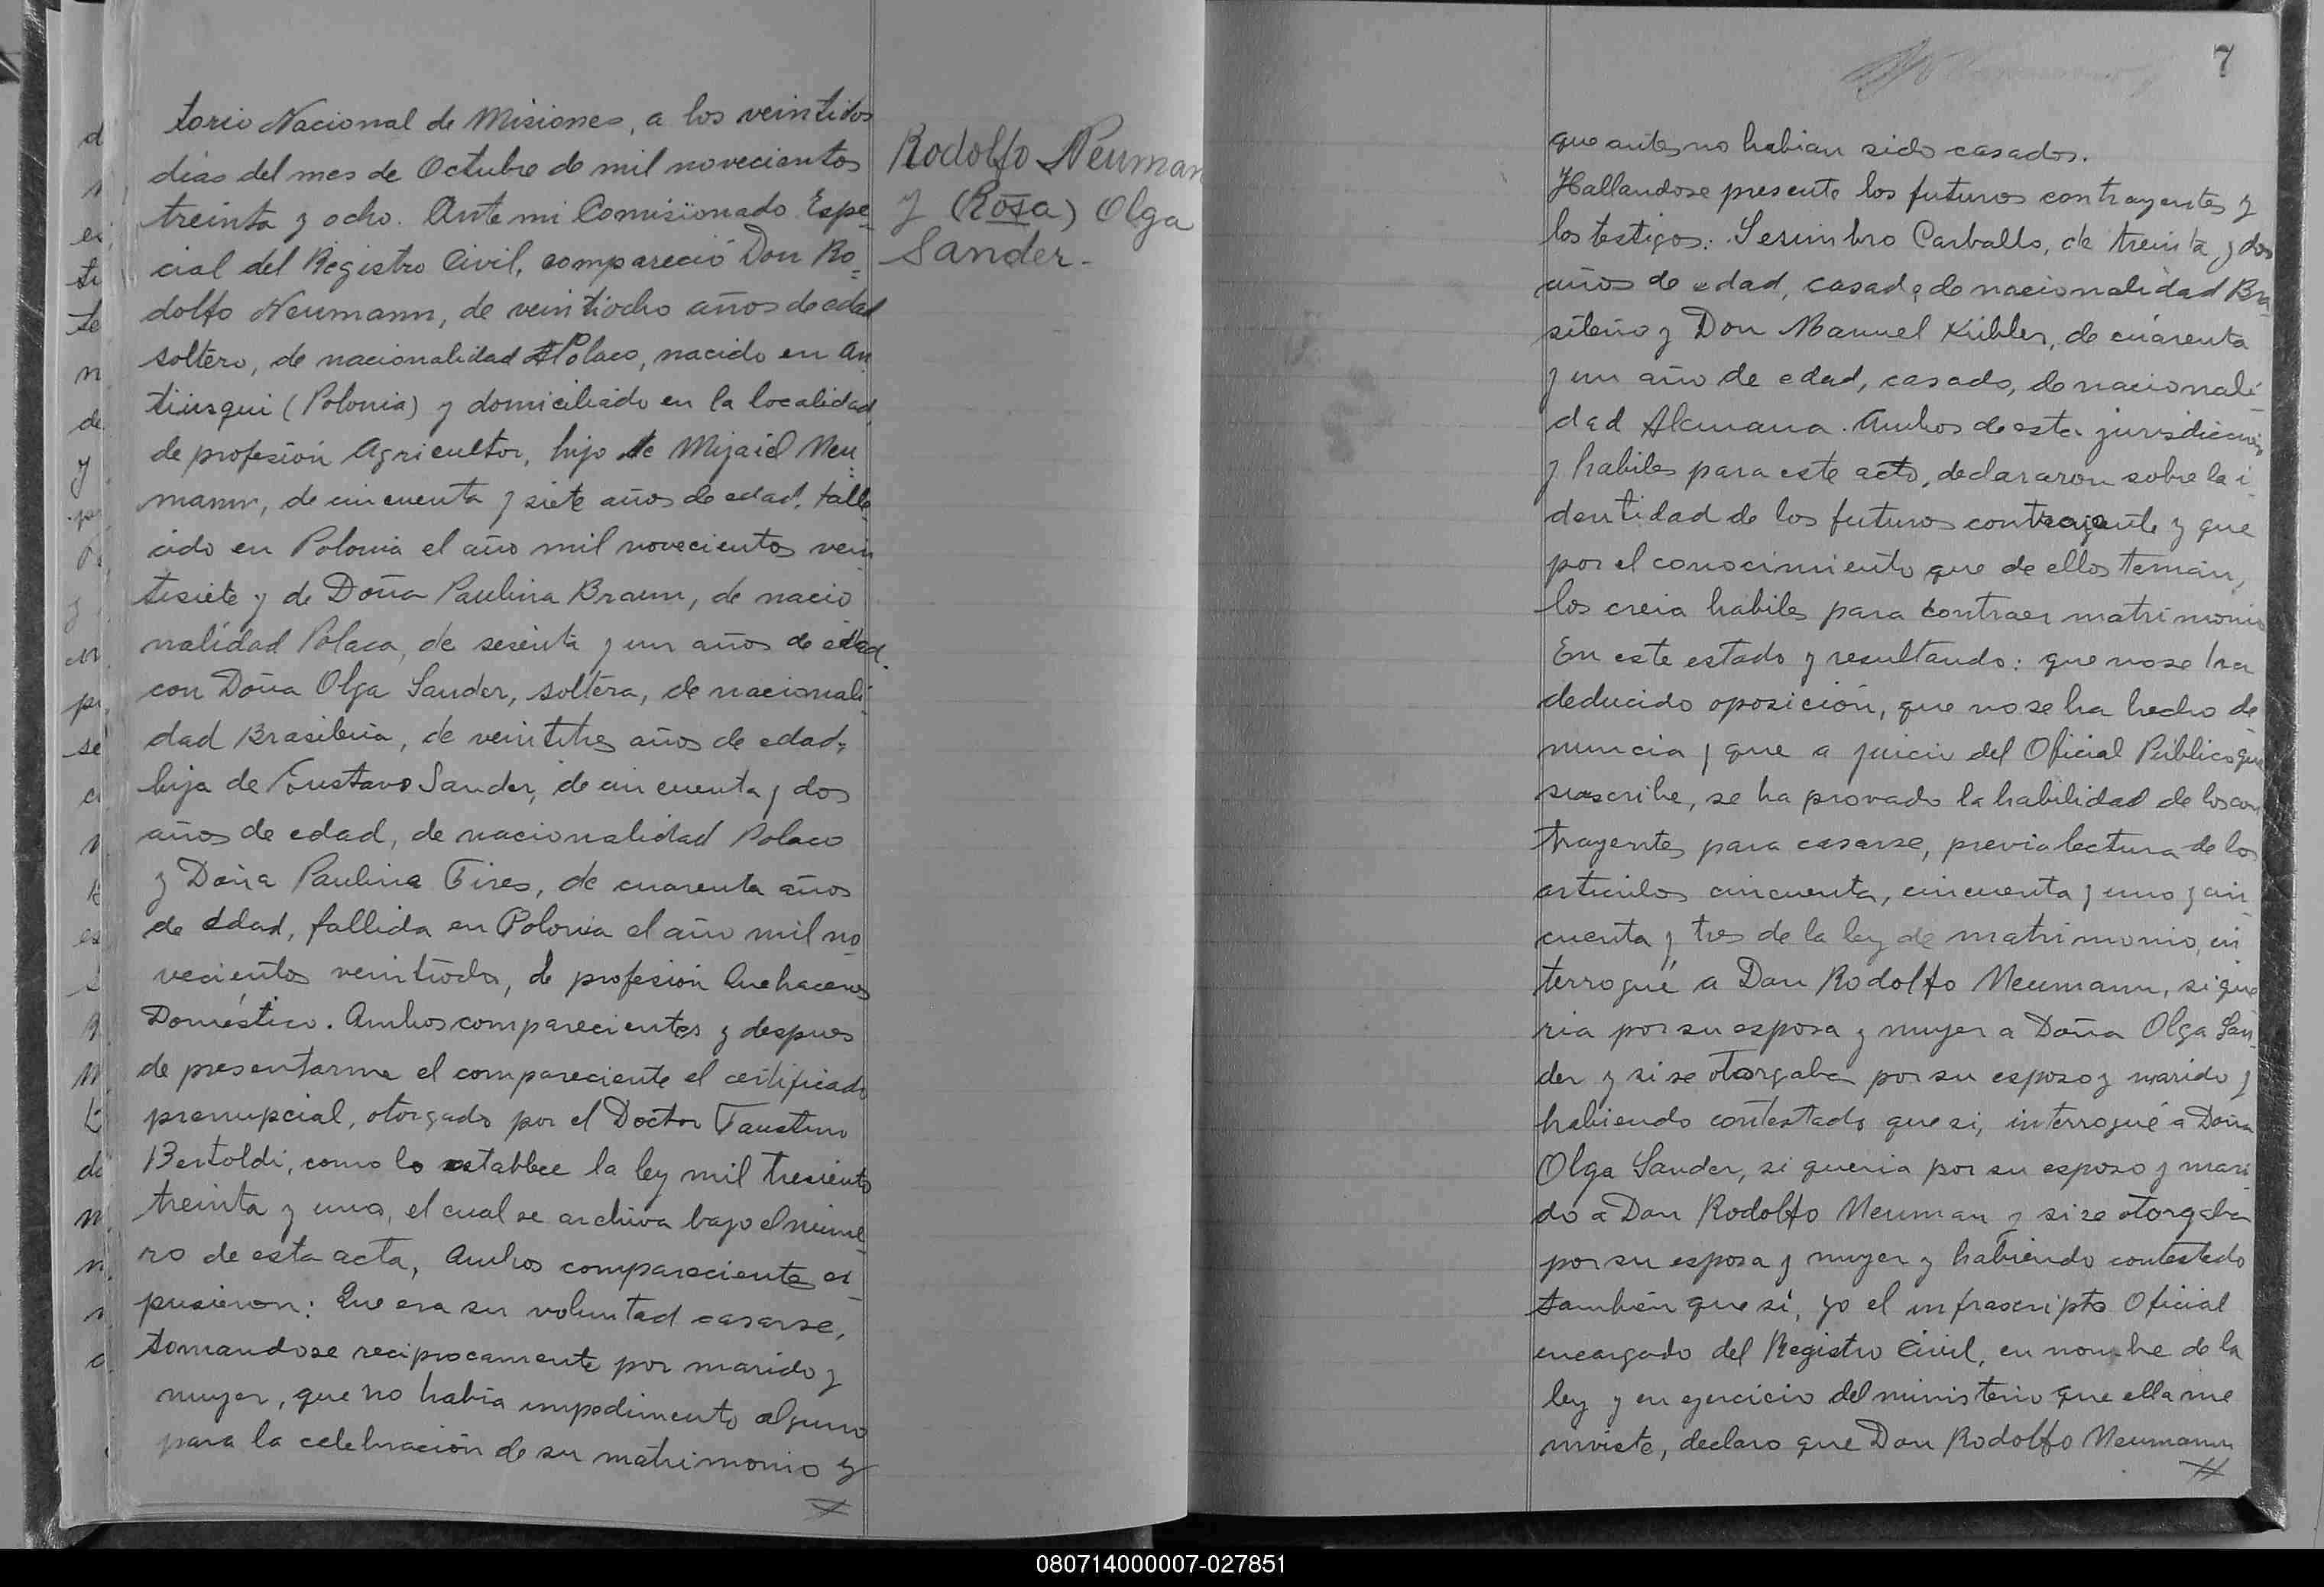 torio Nacional de Misiones, a los veintidos
dias del mes de Octubre de mil novecientos
treinta y ocho. Ante mi Comisionado Espe=
cial del Registro Civil, compareció Don Ro=
dolfo Neumann, de veintiocho años de edad
soltero, de nacionalidad Polaco, nacido en
(Polonia) y domiciliado en la localidad,
de profesión Agricultor, hijo de Mijaiel Neu
mann, de cincuenta y siete años de edad, falle
cido en Polonia el año mil novecientos vein
tisiete y de Doña Paulina Braun, de nacio
nalidad Polaca, de sesenta y un años de edad.
con Doña Olga Sander, soltera, de nacionali
dad Brasileña, de veintitres años de edad,
hija de Gustavo Sander, de cincuenta y dos
años de edad, de nacionalidad Polaco
y Doña Paulina de cuarenta años
de edad, fallida en Polonia el año mil no
vecientos de profesión Quehaceres
Doméstico. Ambos comparecientes y despues
de presentarme el compareciente el certificado
prenupcial, otorgado por el Doctor Faustino
Bertoldi, como lo establece la ley mil tresciento
treinta y uno, el cual se archiva bajo el nume
ro de esta acta, Ambos compareciente ex
pusieron: Que era su voluntad casarse,
tomandose reciprocamente por marido y
muyer, que no habia impedimento alguno
para la celebración de su matrimonio y
Rodolfo Neuman
y (Rosa) Olga
Sander.
7
que antes no habian sido casados.
Hallandose presente los futuros contrayentes y
los testigos: Carballo, de treinta y dos
años de edad, casado de nacionalidad Bra
sileño y Don Manuel Kübler, de cuarenta
y un año de edad, casado, de nacionali
dad Alemana. Ambos de esta jurisdicción
y habiles para este acto, declararon sobre la i
dentidad de los futuros contrayente y que
por el conocimiento que de ellos tenian,
los creia habiles para contraer matrimonio
En este estado y resultando: que no se ha
deducido oposición, que no se ha hecho de
nuncia y que a juicio del Oficial Público que
suscribe, se ha provado la habilidad de los con
trayentes para casarse, previa lectura de los
articulos cincuenta, cincuenta y uno y cin
cuenta y tres de la ley de matrimonio, in
terrogué a Don Rodolfo Neumann, si que
ria por su esposa y muyer a Doña Olga San
der y si se otorgaba por su esposo y marido y
habiendo contestado que si, interrogué a Doña
Olga Sander, si queria por su esposo y mari
do a Don Rodolfo Neuman y si se otorgaba
por su esposa y muyer y habiendo contestado
también que sí, yo el infrascripto Oficial
encargado del Registro Civil, en nombre de la
ley y en ejercicio del ministerio que ella me
inviste, declaro que Don Rodolfo Neumann
080714000007-027851